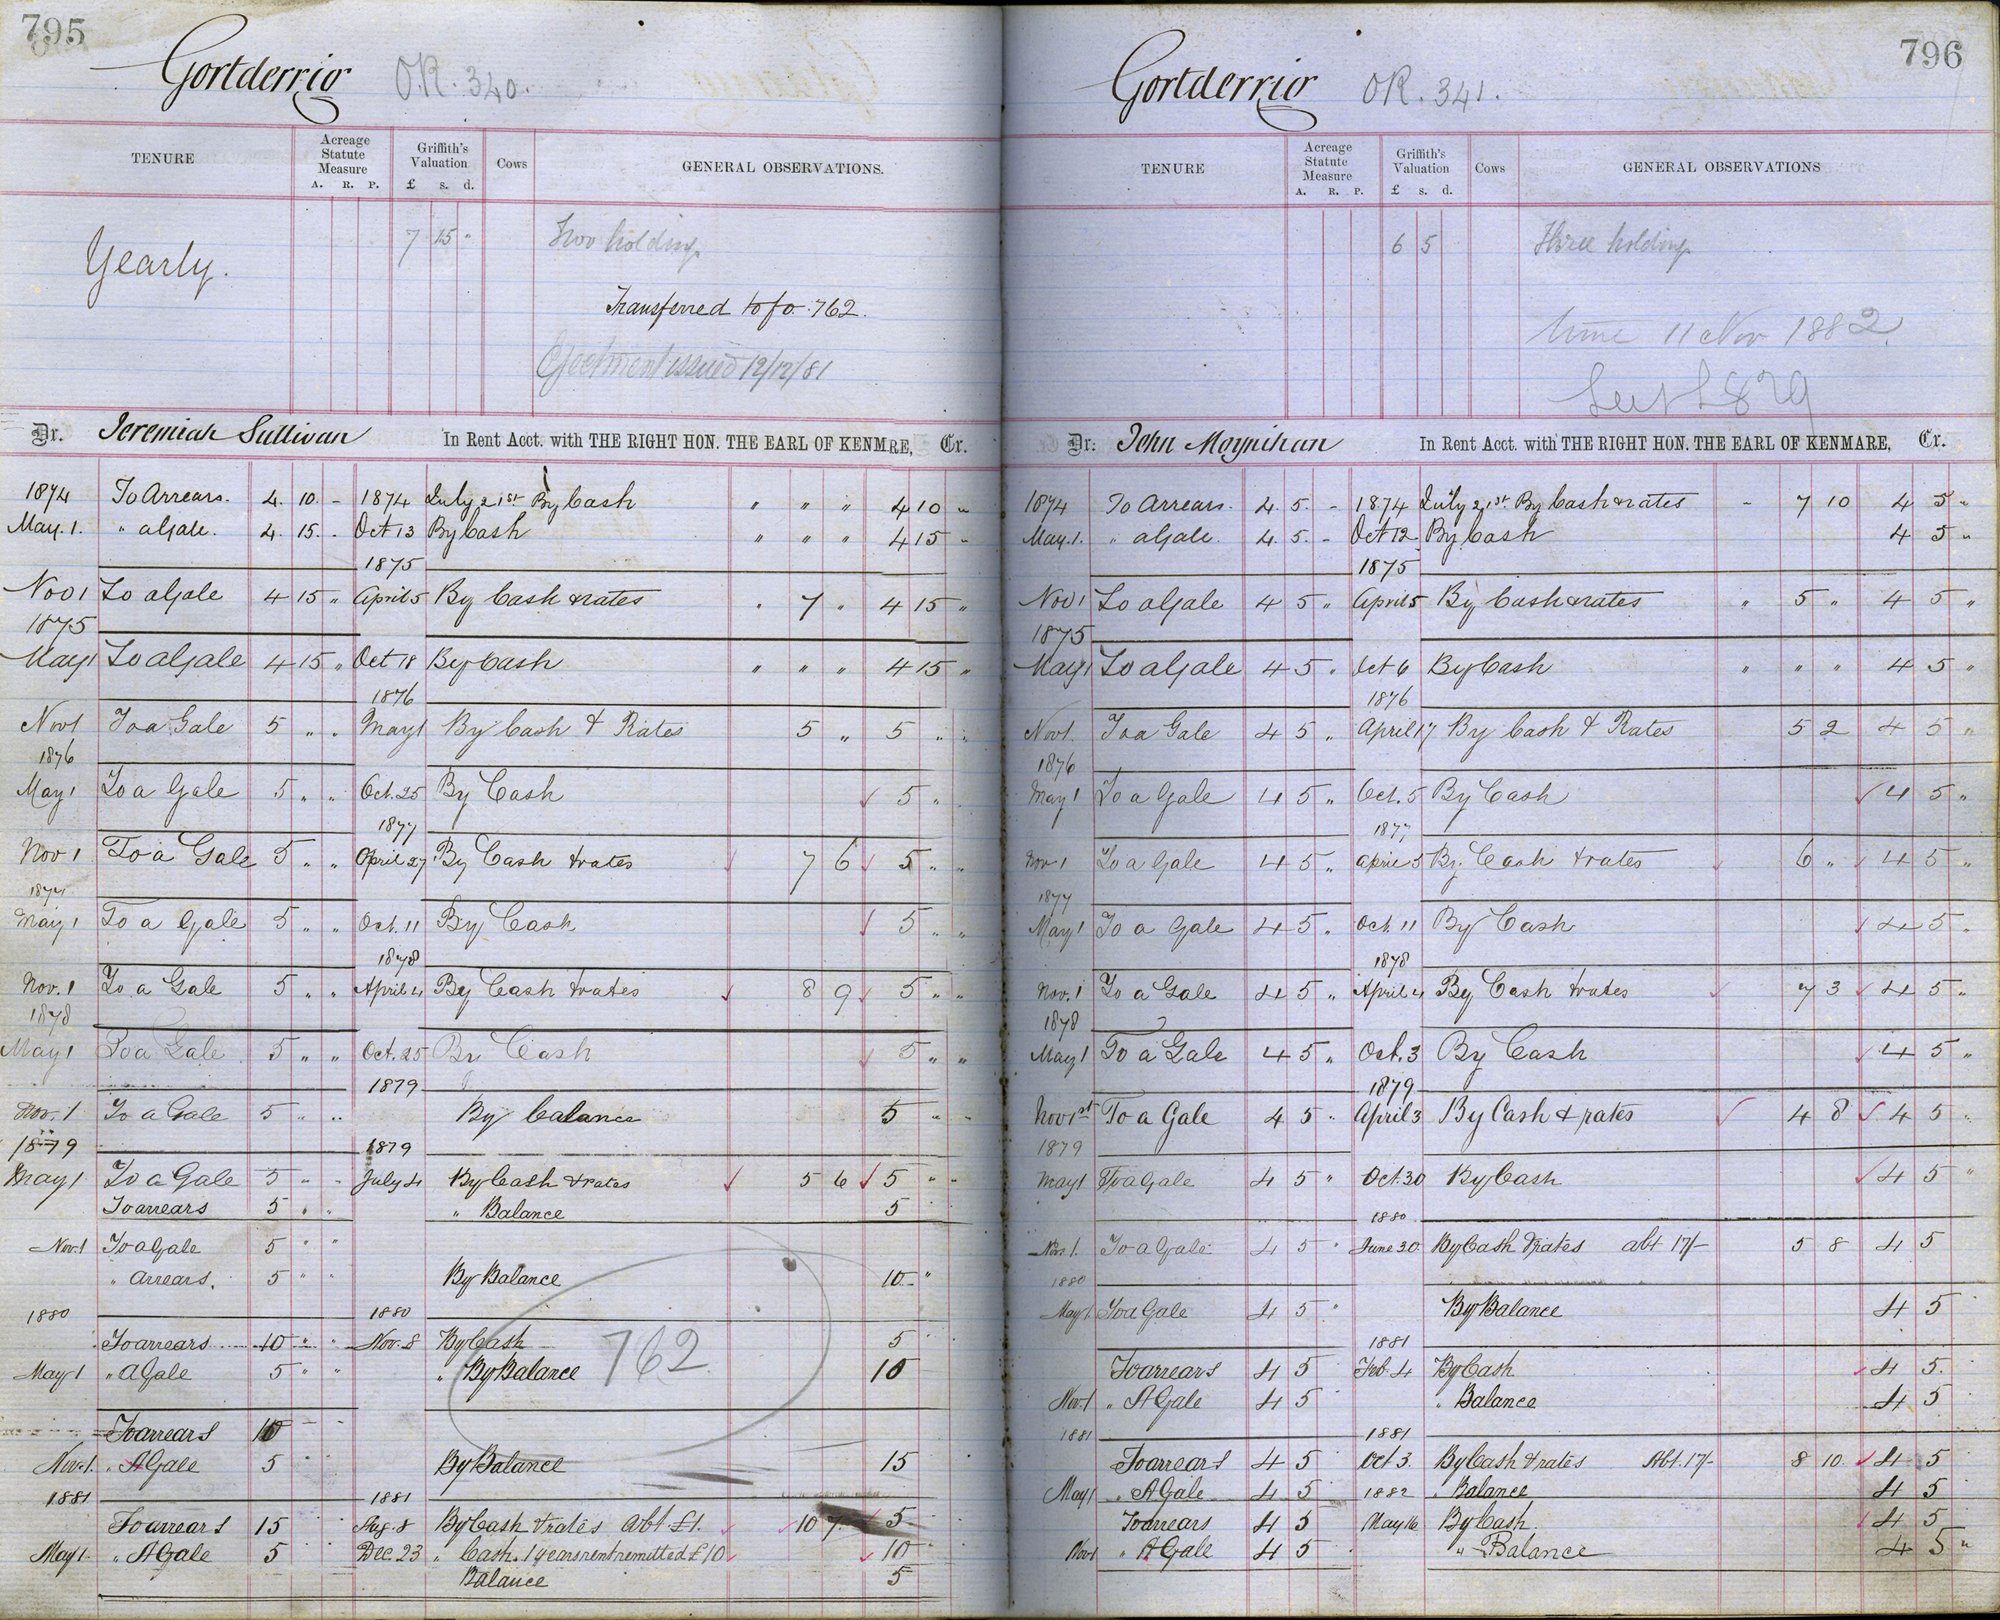 795
Gortderrig O.R. 340.
TENURE Acreage Statute Measure A. R. P. Griffith's Valuation £ s. d. Cows GENERAL OBSERVATIONS.
Yearly. 7 15 " Two holdings
Transferred to fo. 762.
Ejectment issued 12/12/81
Dr. Jeremiah Sullivan In Rent Acct. with THE RIGHT HON. THE EARL OF KENMRE, Cr.
1874 To Arrears. 4. 10. - 1874 July 21st By Cash " " " 4 10 "
May. 1. " a Gale. 4. 15. - Oct 13 By Cash " " " 4 15 "
1875
Nov 1 To a Gale 4 15 " April 5 By Cash & rates " 7 " 4 15 "
1875
May 1 To a Gale 4 15 " Oct 18 By Cash " " " 4 15 "
1876
Nov 1 To a Gale 5 " " May 1 By Cash & Rates 5 " 5 " "
1876
May 1 To a Gale 5 " " Oct. 25 By Cash 5 "
1877
Nov 1 To a Gale 5 " " April 27 By Cash & rates 7 6 5 " "
1877
May 1 To a Gale 5 " " Oct. 11 By Cash 5 " "
1878
Nov. 1 To a Gale 5 " " April 4 By Cash & rates 8 9 5 " "
1878
May 1 To a Gale 5 " " Oct. 25 By Cash 5 " "
1879
Nov. 1 To a Gale 5 " " By balance 5 " "
1879 1879
May 1 To a Gale 5 " " July 4 By Cash & rates 5 6 5 " "
To arrears 5 " " " Balance 5
Nov. 1 To a Gale 5 " "
" Arrears. 5 " " By Balance 10 "
1880 1880
To arrears 10 " " Nov. 8 By Cash 5
May 1 " A Gale 5 " " " By Balance 10
762
To arrears 10
Nov. 1. " A Gale 5 By Balance 15
1881 1881
To arrears 15 Aug. 8 By Cash & rates Abt £1. 10 7 5
May 1 " A Gale 5 Dec. 23 " Cash. 1 years rent remitted £10 10
Balance 5
796
Gortderrig OR. 341.
TENURE Acreage Statute Measure A. R. P. Griffith's Valuation £ s. d. Cows GENERAL OBSERVATIONS
6 5 Three holdings
time 11 Nov 1882.
Dr: John Moynihan In Rent Acct. with THE RIGHT HON. THE EARL OF KENMARE, Cr.
1874 To Arrears. 4. 5. - 1874 July 21st. By Cash & rates - 7 10 4 5 "
May. 1. " a Gale. 4. 5. - Oct 12 By Cash 4 5 "
1875
Nov 1 To a Gale 4 5 " April 5 By Cash & rates " 5 " 4 5 "
1875
May 1 To a Gale 4 5 " Oct 6 By Cash " " " 4 5 "
1876
Nov 1. To a Gale 4 5 " April 17 By Cash & Rates 5 2 4 5 "
1876
May 1 To a Gale 4 5 " Oct. 5 By Cash 4 5 "
1877
Nov 1 To a Gale 4 5 " April 5 By Cash & rates 6 " 4 5 "
1877
May 1 To a Gale 4 5 " Oct. 11 By Cash 4 5 "
1878
Nov. 1 To a Gale 4 5 " April 4 By Cash & rates 7 3 4 5 "
1878
May 1 To a Gale 4 5 " Oct. 3 By Cash 4 5 "
1879
Nov 1st To a Gale 4 5 " April 3 By Cash & rates 4 8 4 5 "
1879
May 1 To a Gale 4 5 " Oct. 30 By Cash 4 5 "
1880
Nov 1. To a Gale 4 5 " June 30 By Cash & rates abt 17/- 5 8 4 5
1880
May 1 To a Gale 4 5 " By Balance 4 5
1881
To arrears 4 5 Feb. 4 By Cash 4 5
Nov. 1 " A Gale 4 5 " Balance 4 5
1881 1881
To arrears 4 5 Oct 3. By Cash & rates Abt. 17/- 8 10 4 5
May 1 " A Gale 4 5 1882 " Balance 4 5
To arrears 4 5 May 16 By Cash 4 5
Nov 1 " A Gale 4 5 " Balance 4 5 "